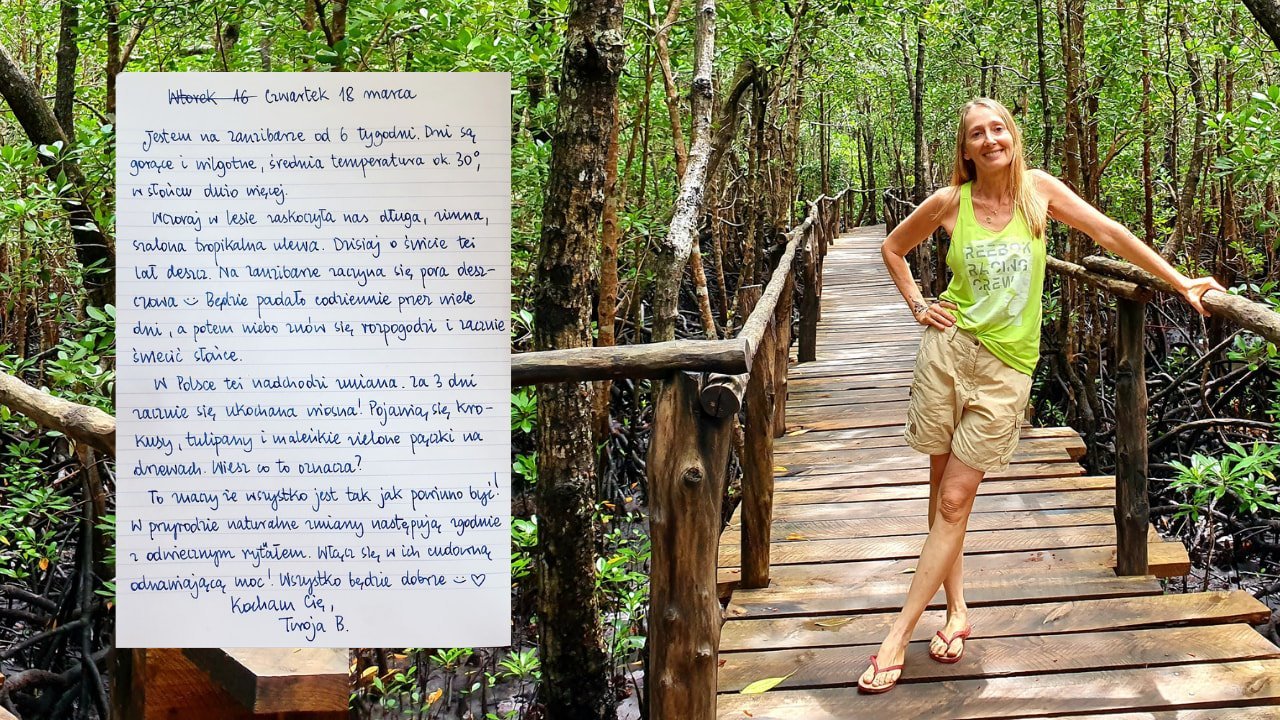 Wtorek 16 Czwartek 18 marca
Jestem na Zanzibarze od 6 tygodni. Dni są
gorące i wilgotne, średnia temperatura ok. 30°,
w słońcu dużo więcej.
Wczoraj w lesie zaskoczyła nas długa, zimna,
szalona tropikalna ulewa. Dzisiaj o świcie też
lał deszcz. Na Zanzibarze zaczyna się pora desz-
czowa Będzie padało codziennie przez wiele
dni, a potem niebo znów się rozpogodzi i zacznie
świecić słońce.
W Polsce też nadchodzi zmiana. Za 3 dni
zacznie się ukochana wiosna! Pojawią się kro-
kusy, tulipany i maleńkie zielone pączki na
drzewach. Wiesz co to oznacza?
To znaczy że wszystko jest tak jak powinno być!
W przyrodzie naturalne zmiany następują zgodnie
z odwiecznym rytuałem. Włącz się w ich cudowną
odnawiającą moc! Wszystko będzie dobrze
Kocham Cię,
Twoja B.
REEBOK
RACING
CREW